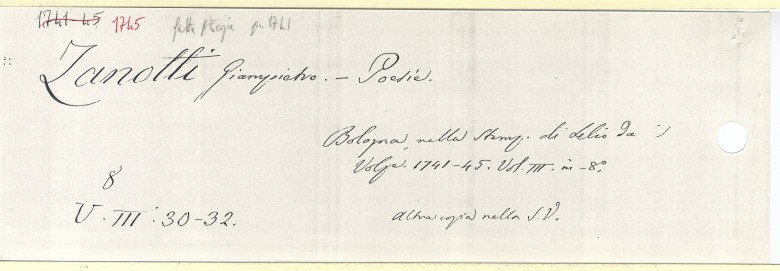 1741-45 1745 fatta fotocopia per 1741
Zanotti Giampietro. - Poesie.
Bologna, nella Stamp. di Lelio Da
Volpe. 1741-45. Vol. III. in-8.º
8
V. III : 30-32.
altra copia nella S.V.